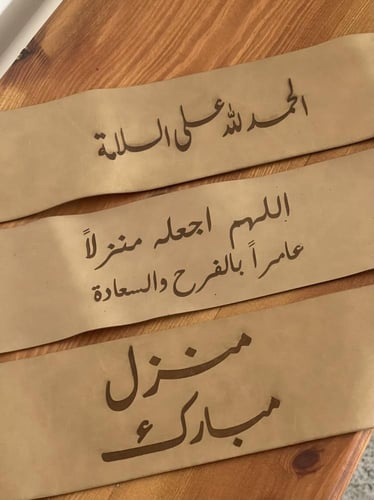 الحمد لله على السلامة
اللهم اجعله منزلاً
عامراً بالفرح والسعادة
منزل
مبارك